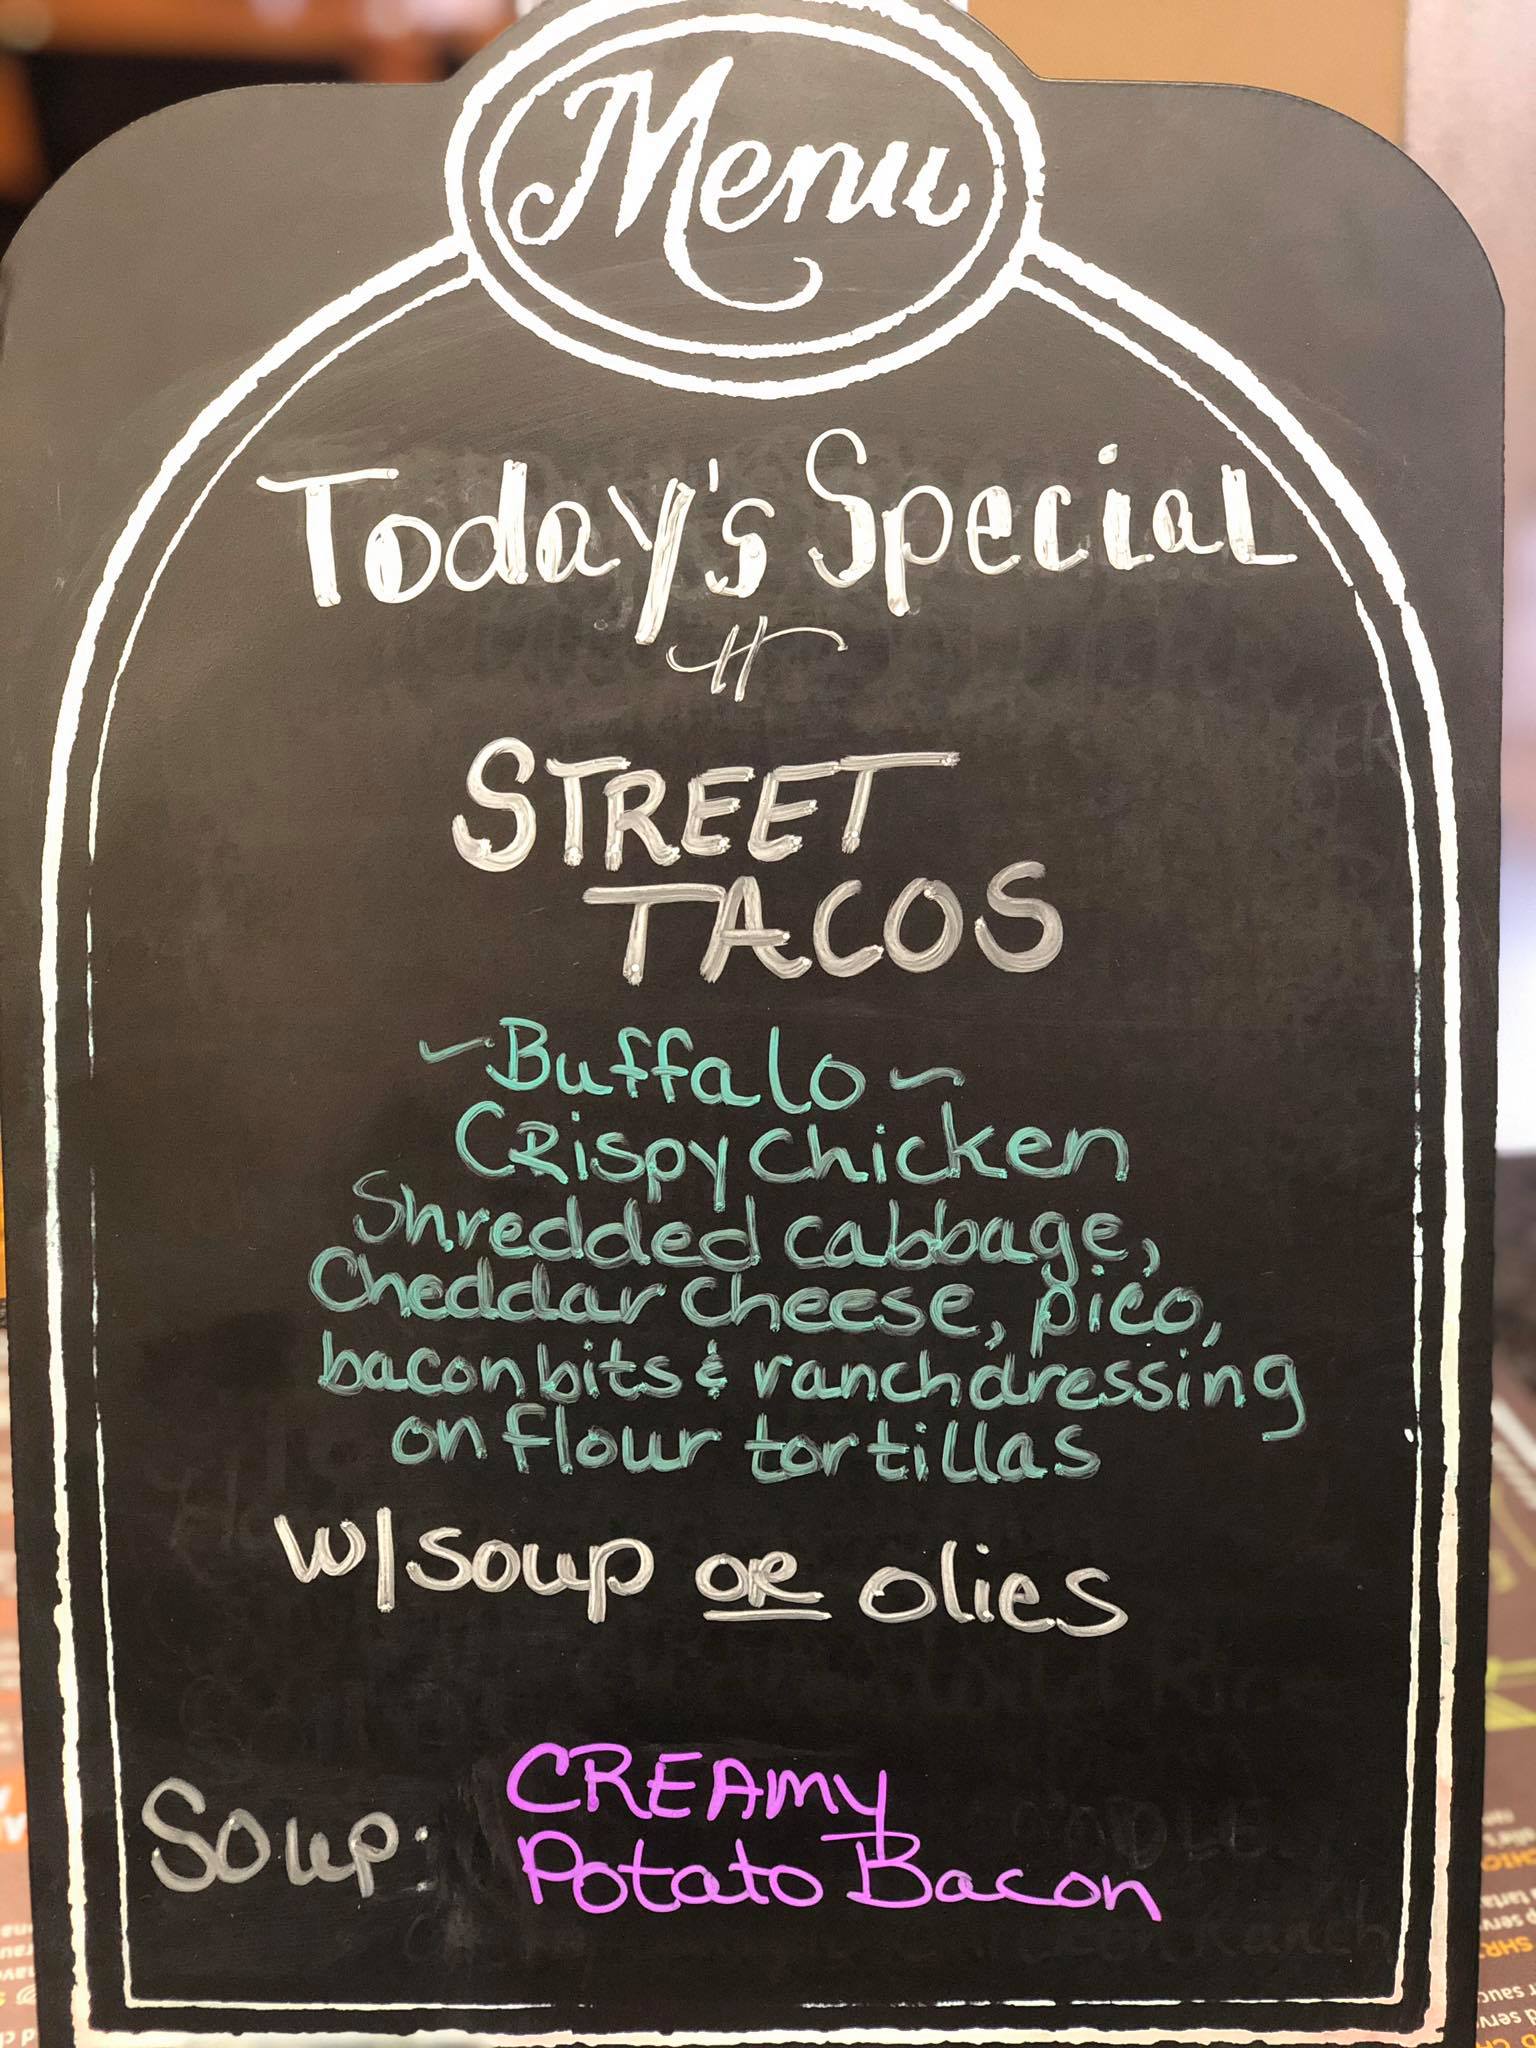 Menu
Today's Special
STREET
TACOS
~Buffalo~
Crispy Chicken
Shredded cabbage,
Cheddar cheese, pico,
bacon bits & ranch dressing
on flour tortillas
w/soup or olies
Soup: CREAMY
Potato Bacon